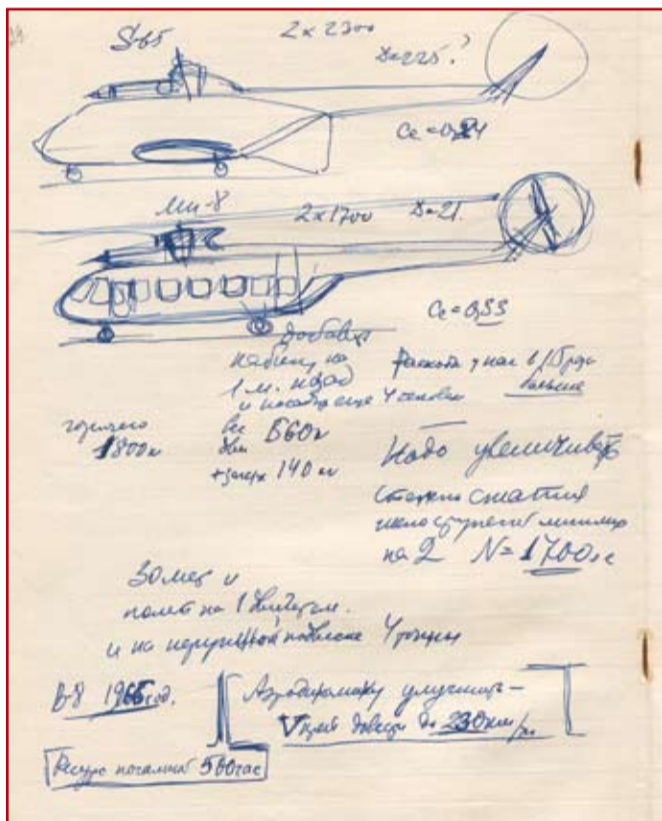 S-65 2 x 2300
D=225.?
Ce = 0,24
Ми-8 2x1700 D=21.
Ce = 0,33
добавить
кабину на
1 м. назад
и посадить еще 4 человек
Расход у нас в 1,5 раза
больше
горючего
1800 кг
вес 560 кг
140 кг
Надо увеличивать
степень сжатия
число ступеней минимум
на 2 N = 1700 лс
30 мест и
полет на 1
и на наружной подвеске 4 тонны
В-8 1965 год.
Аэродинамику улучшить —
V довести до 230 км/час
Ресурс 500 час